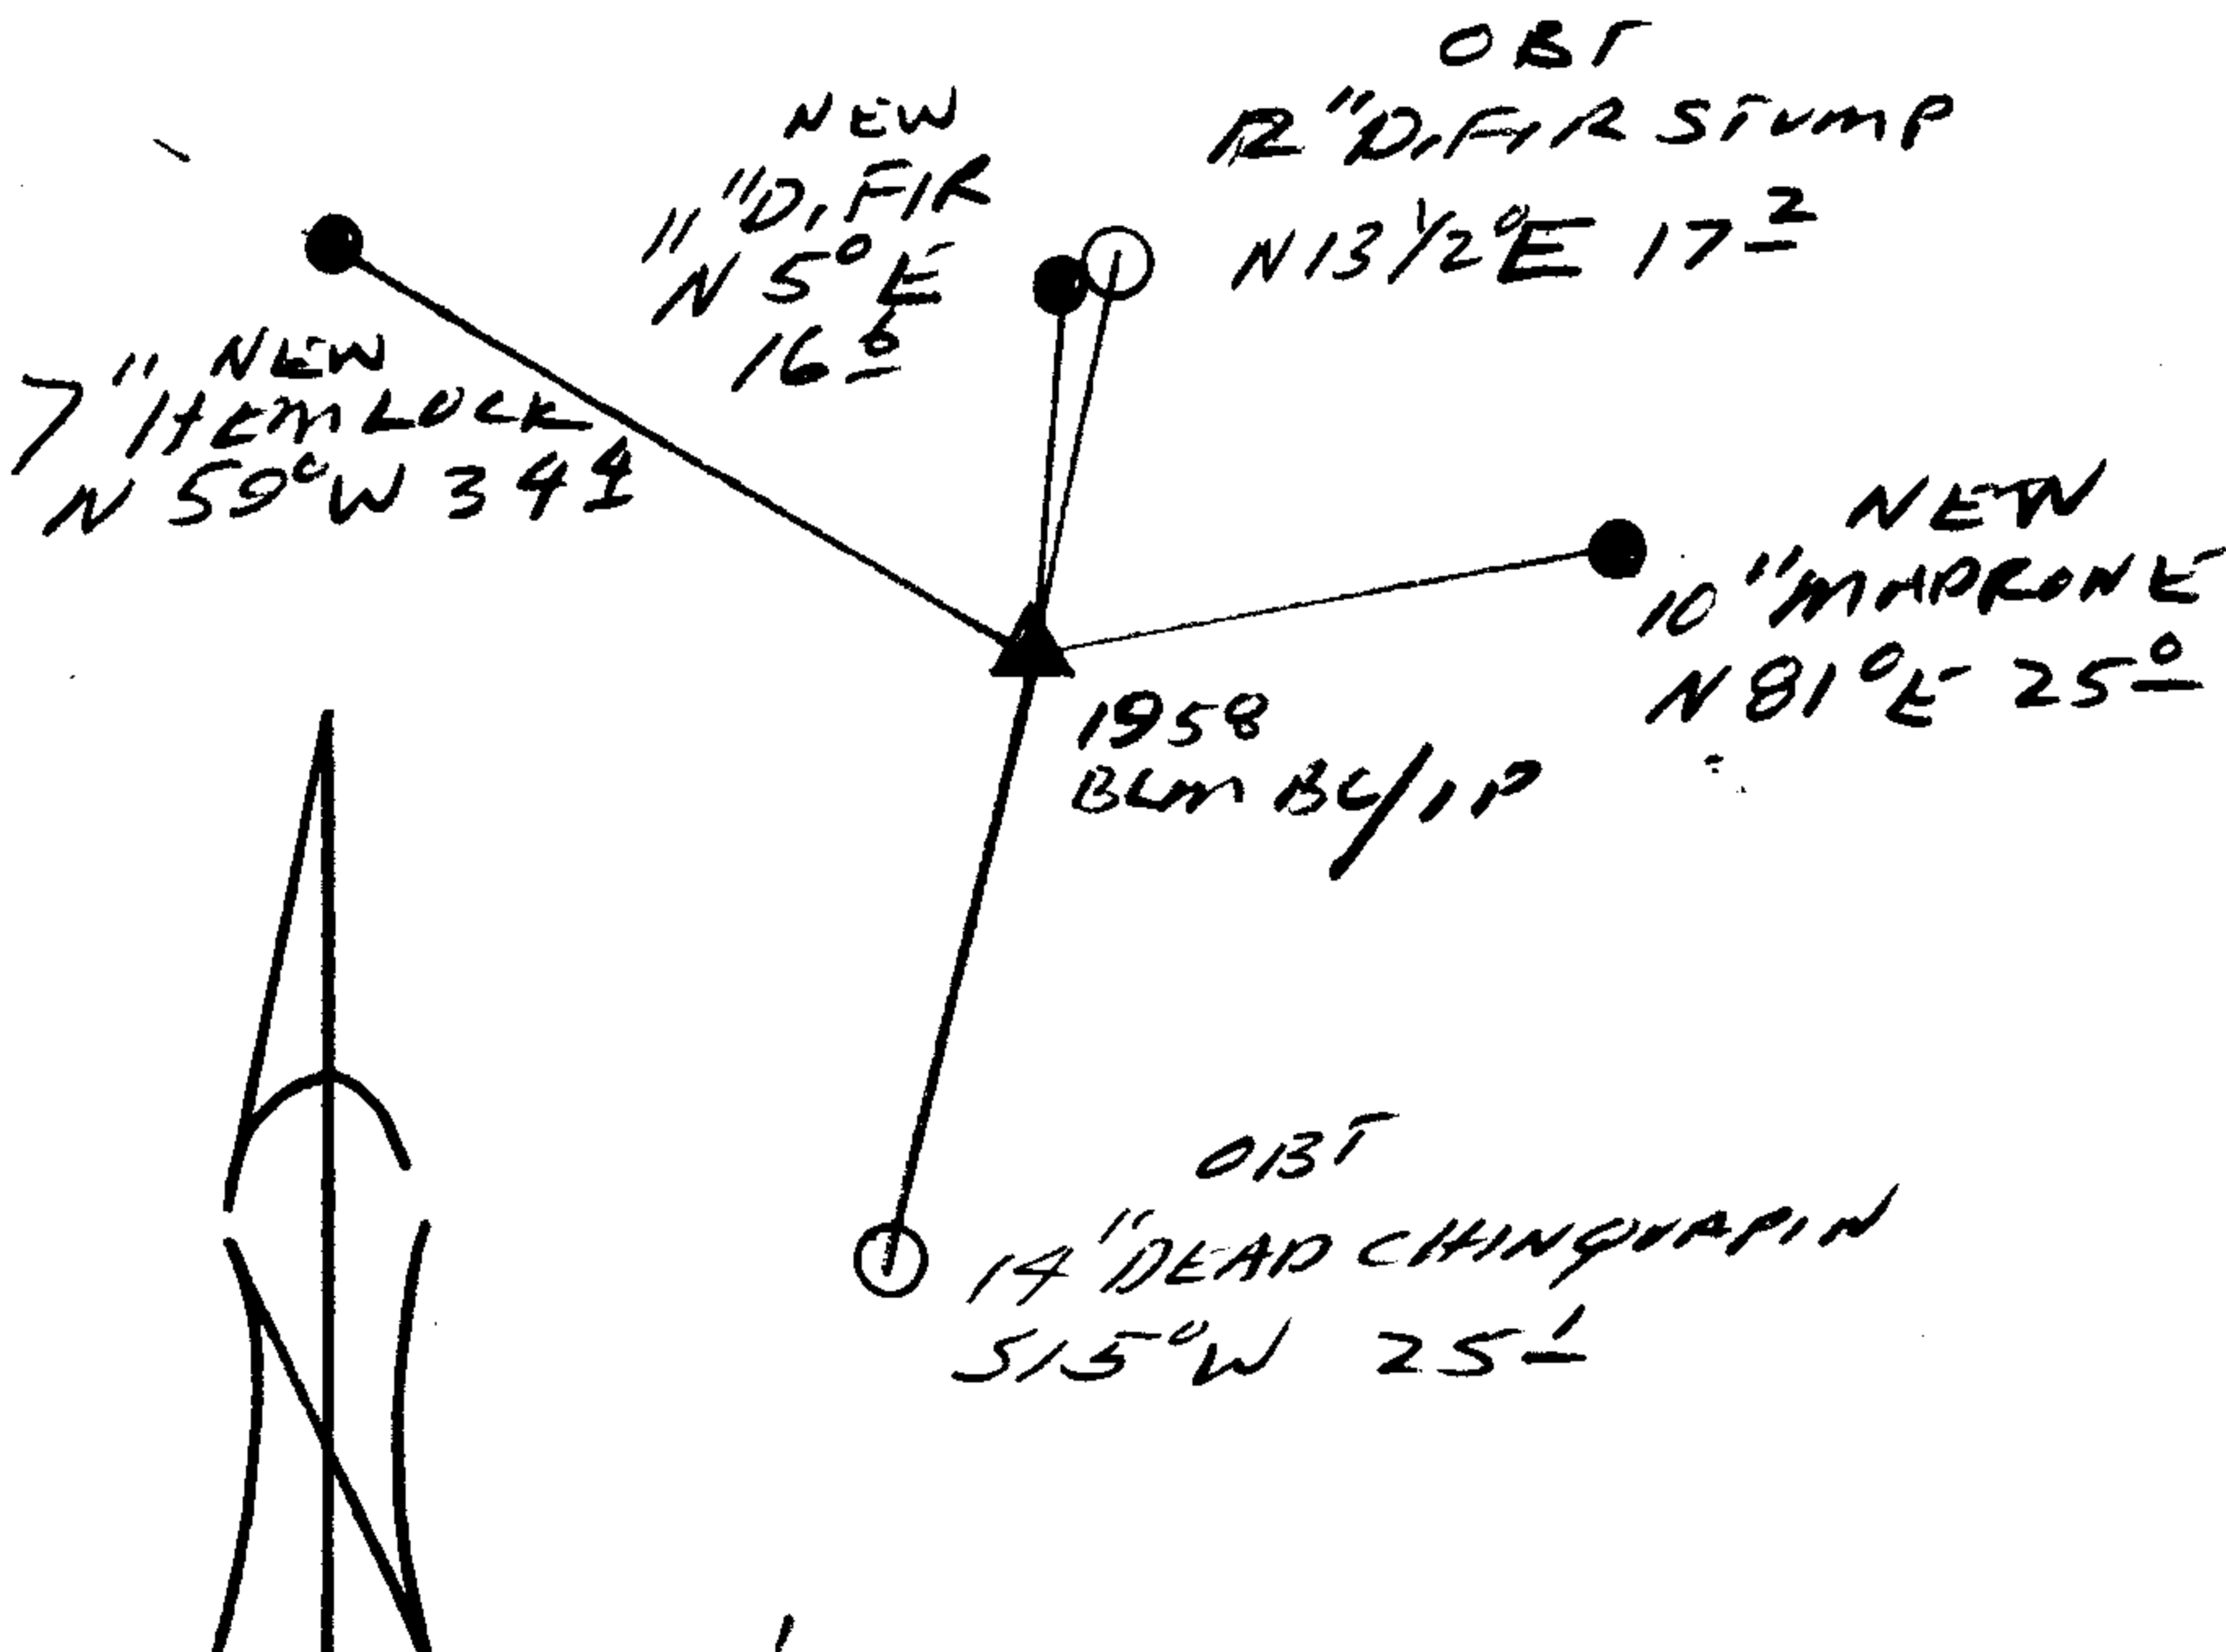 OBT
12" D. FIR STUMP
N 13 1/2° E 17 2
NEW
11" D. FIR
N 5° E
16
NEW
7" HEMLOCK
N 59° W 34
NEW
10" MADRONE
N 81° E 25 0
1958
BLM BC/IP
OBT
14" DEAD CHINQUAPIN
S 15° W 25 1
N